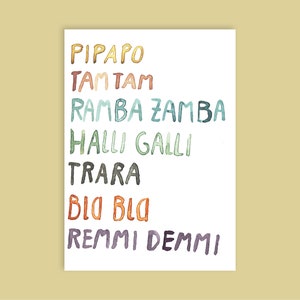 PIPAPO
TAMTAM
RAMBA ZAMBA
HALLI GALLI
TRARA
BLA BLA
REMMI DEMMI